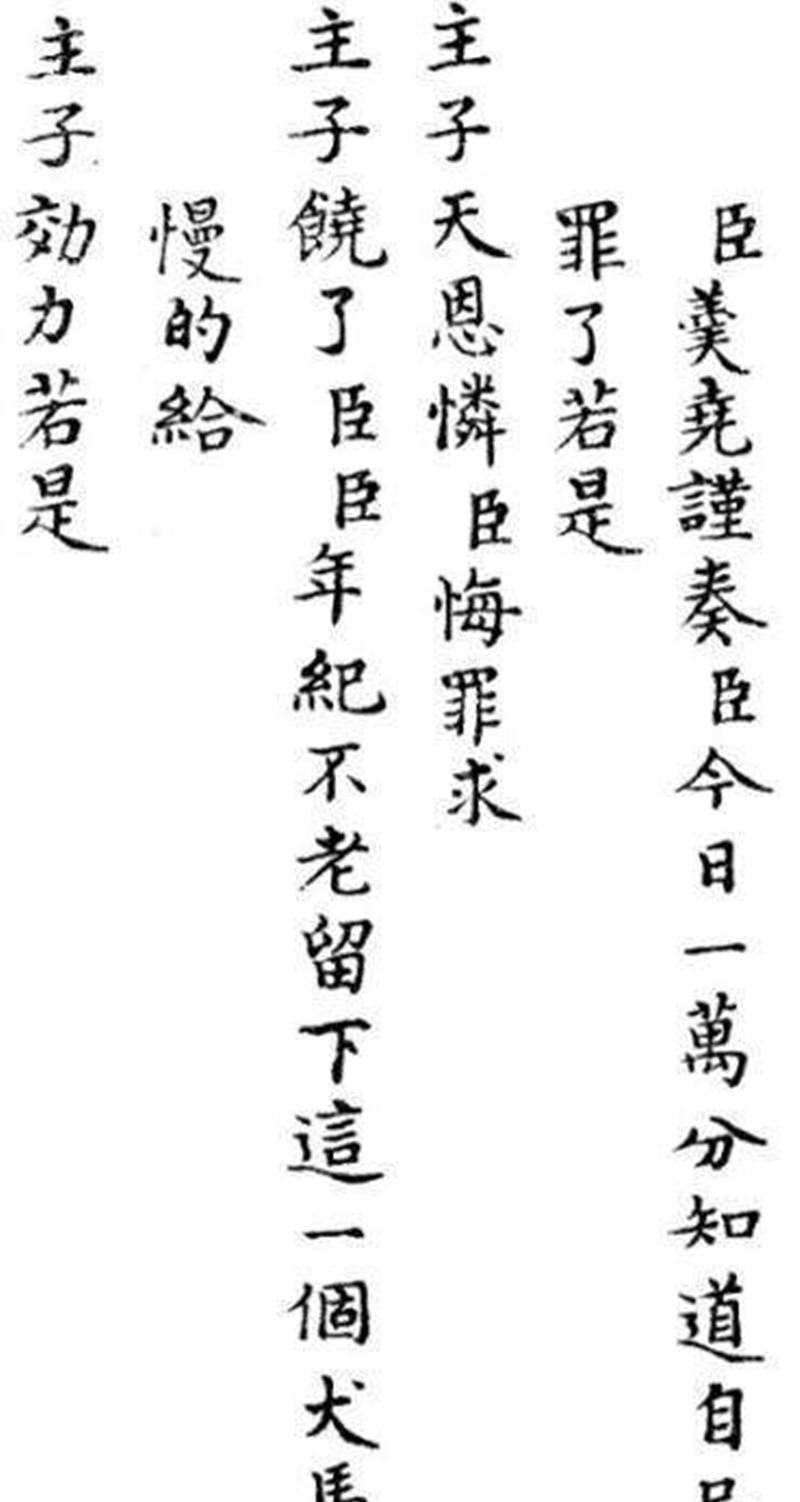 臣羹堯謹奏臣今日一萬分知道自己
罪了若是
主子天恩憐臣悔罪求
主子饒了臣臣年紀不老留下這一個犬馬
慢的給
主子効力若是